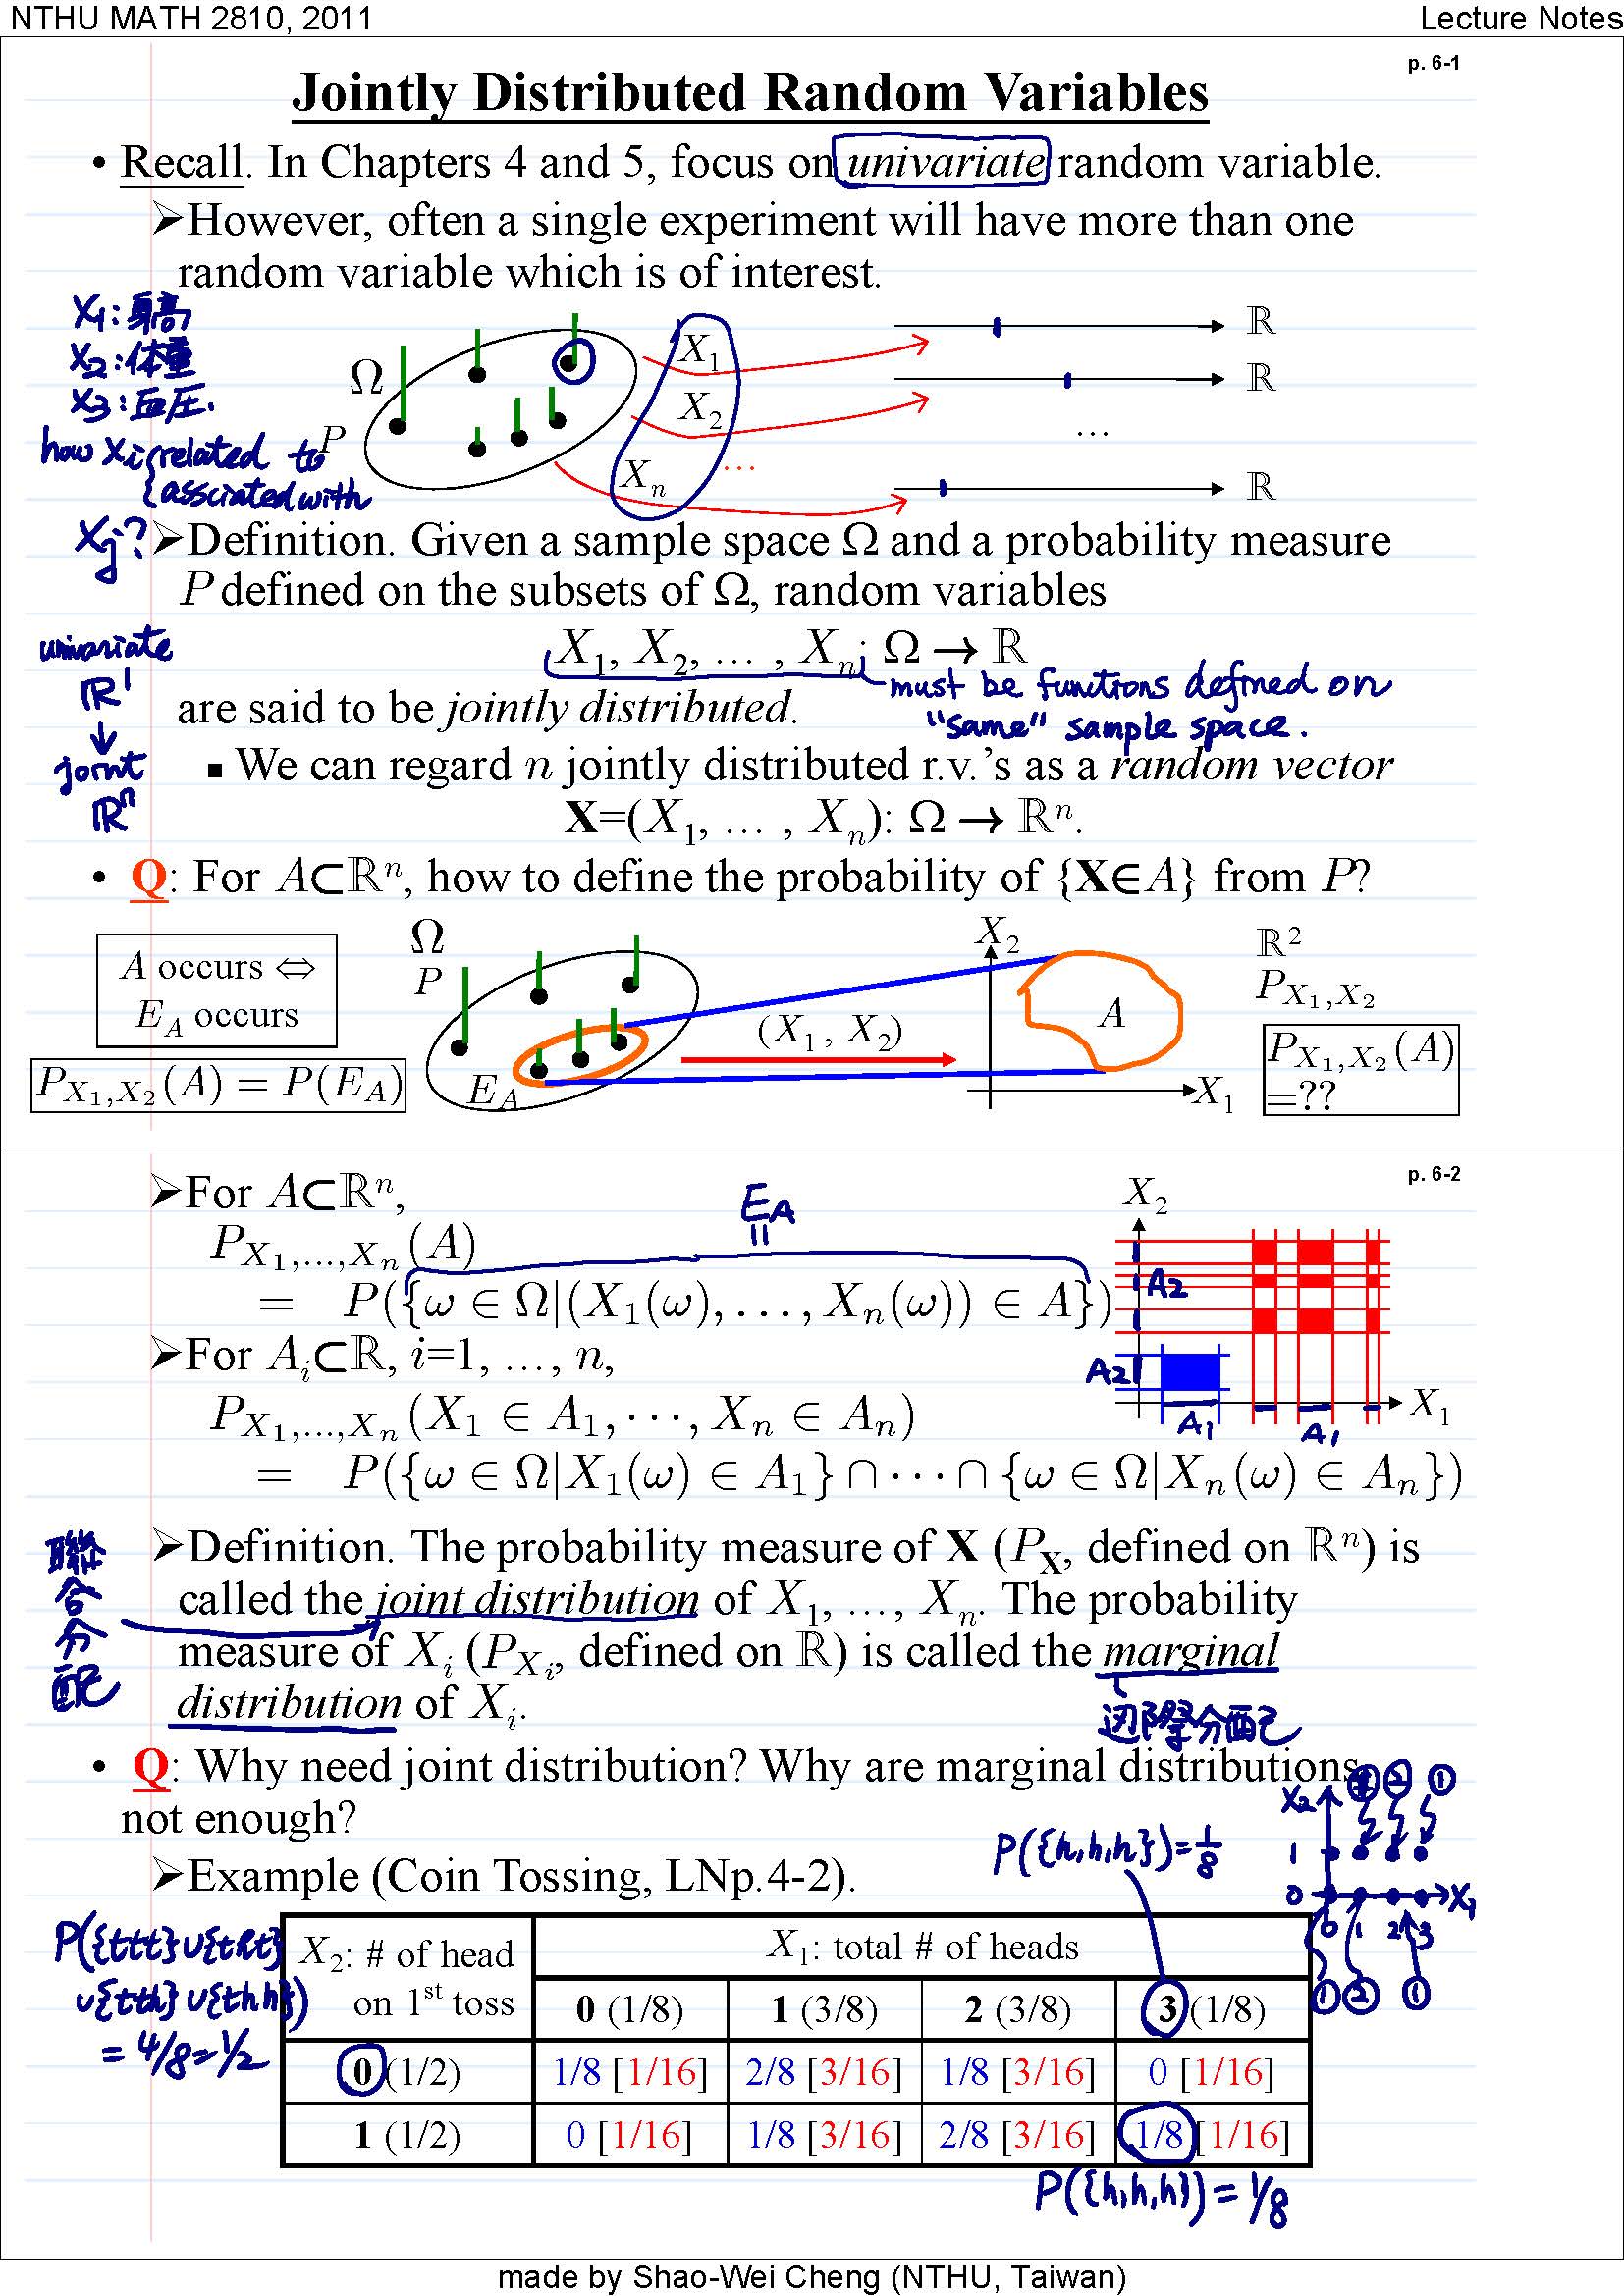 NTHU MATH 2810, 2011
Lecture Notes
p. 6-1
Jointly Distributed Random Variables
• Recall. In Chapters 4 and 5, focus on univariate random variable.
➢However, often a single experiment will have more than one
random variable which is of interest.
X1:身高
X2:体重
X3:血压.
how Xi related to
associated with
Xj?
Ω
P
X₁
X₂
...
Xₙ
ℝ
ℝ
...
ℝ
➢Definition. Given a sample space Ω and a probability measure
P defined on the subsets of Ω, random variables
X₁, X₂, … , Xₙ: Ω → ℝ
must be functions defined on
"same" sample space.
are said to be jointly distributed.
univariate
ℝ¹
↓
joint
ℝⁿ
▪ We can regard n jointly distributed r.v.'s as a random vector
X=(X₁, … , Xₙ): Ω → ℝⁿ.
• Q: For A⊂ℝⁿ, how to define the probability of {X∈A} from P?
A occurs ⇔
E_A occurs
P_{X₁,X₂}(A) = P(E_A)
Ω
P
E_A
(X₁, X₂)
X₂
A
X₁
ℝ²
P_{X₁,X₂}
P_{X₁,X₂}(A)
=??
p. 6-2
➢For A⊂ℝⁿ,
P_{X₁,…,Xₙ}(A)
E_A
=
= P({ω ∈ Ω|(X₁(ω), …, Xₙ(ω)) ∈ A})
➢For Aᵢ⊂ℝ, i=1, …, n,
P_{X₁,…,Xₙ}(X₁ ∈ A₁, ⋯, Xₙ ∈ Aₙ)
= P({ω ∈ Ω|X₁(ω) ∈ A₁} ∩ ⋯ ∩ {ω ∈ Ω|Xₙ(ω) ∈ Aₙ})
X₂
A2
A2
X₁
A1
A1
➢Definition. The probability measure of X (P_X, defined on ℝⁿ) is
called the joint distribution of X₁, …, Xₙ. The probability
measure of Xᵢ (P_{Xᵢ}, defined on ℝ) is called the marginal
distribution of Xᵢ.
聯合分配
边際分配
• Q: Why need joint distribution? Why are marginal distributions
not enough?
➢Example (Coin Tossing, LNp.4-2).
P({h,h,h})=1/8
X2
② ①
1
0
X1
0 1 2 3
① ② ①
P({ttt}∪{tht}
∪{tth}∪{thh})
= 4/8=1/2
X₂: # of head
on 1st toss
X₁: total # of heads
0 (1/8) 1 (3/8) 2 (3/8) 3 (1/8)
0 (1/2) 1/8 [1/16] 2/8 [3/16] 1/8 [3/16] 0 [1/16]
1 (1/2) 0 [1/16] 1/8 [3/16] 2/8 [3/16] 1/8 [1/16]
P({h,h,h}) = 1/8
made by Shao-Wei Cheng (NTHU, Taiwan)